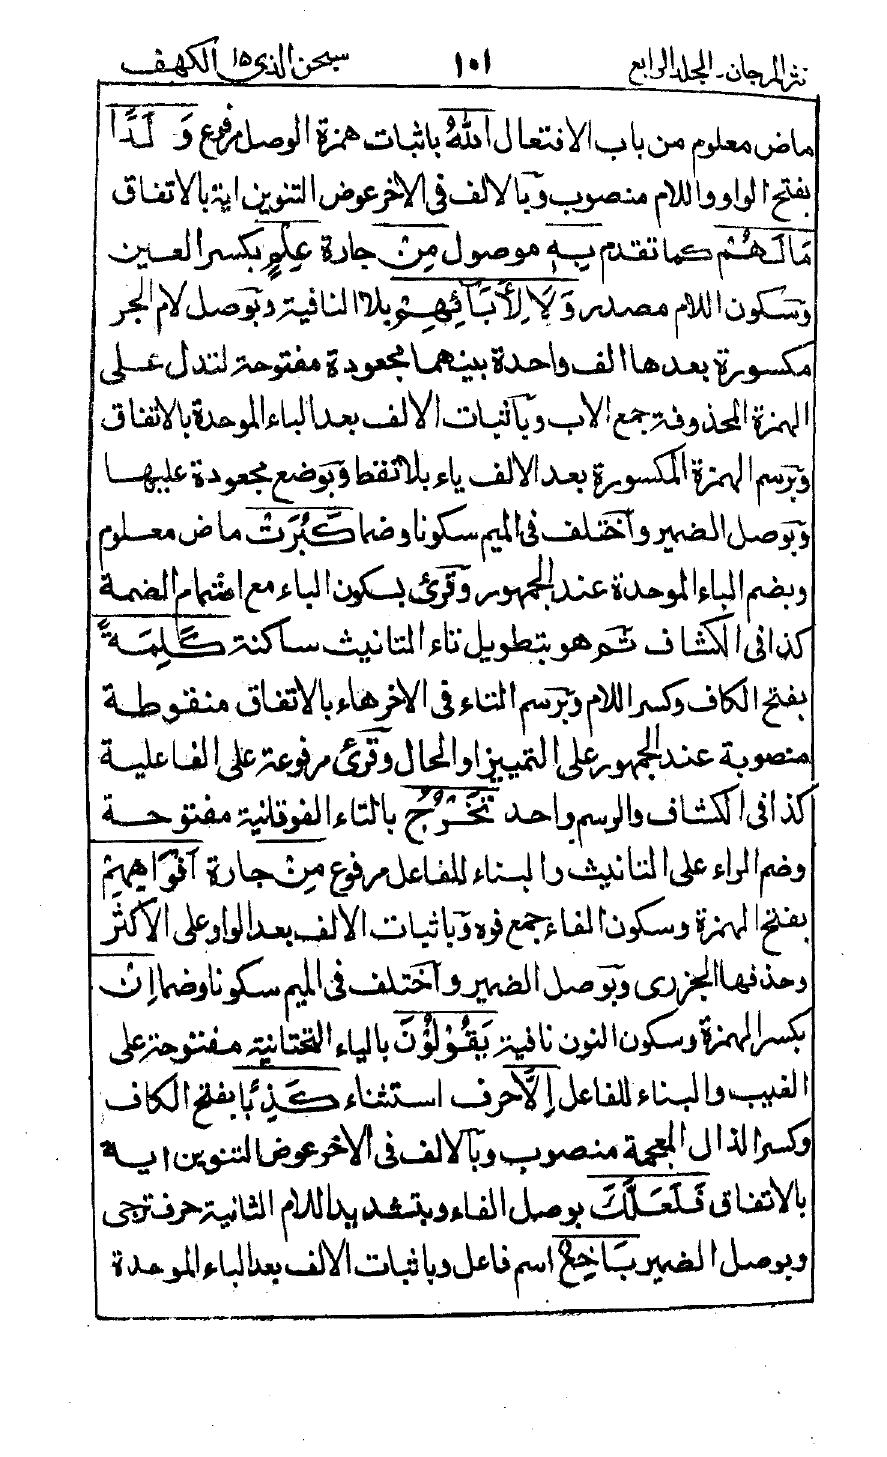 نثر المرجان ـ المجلد الرابع ١٠١ سبحن الذي ١٥ الكهف
ماض معلوم من باب الافتعال اللهُ باثبات همزة الوصل مرفوع وَلَدًا
بفتح الواو واللام منصوب وبالالف فى الاخر عوض التنوين اية بالاتفاق
مَالَهُمْ كما تقدم بِهٖ موصول مِنْ جارة عِلْمٍ بكسر العين
وسكون اللام مصدر وَلَا لِأٰبَآئِهِمْ بلا النافية وبوصل لام الجر
مكسورة بعدها الف واحدة بينهما مجعودة مفتوحة لتدل على
الهمزة المحذوفة جمع الاب وباثبات الالف بعد الباء الموحدة بالاتفاق
وبرسم الهمزة المكسورة بعد الالف ياء بلا نقط وبوضع مجعودة عليها
وبوصل الضمير واختلف فى الميم سكونا وضما كَبُرَتْ ماض معلوم
وبضم الباء الموحدة عند الجمهور وقرئ بسكون الباء مع اشمام الضمة
كذا فى الكشاف ثم هو بتطويل تاء التانيث ساكنة كَلِمَةً
بفتح الكاف وكسر اللام وبرسم التاء فى الاخر هاء بالاتفاق منقوطة
منصوبة عند الجمهور على التمييز او الحال وقرئ مرفوعة على الفاعلية
كذا فى الكشاف والرسم واحد تَخْرُجُ بالتاء الفوقانية مفتوحة
وضم الراء على التانيث والبناء للفاعل مرفوع مِنْ جارة اَفْوَاهِهِمْ
بفتح الهمزة وسكون الفاء جمع فوه وباثبات الالف بعد الواو على الاكثر
وحذفها الجزرى وبوصل الضمير واختلف فى الميم سكونا وضما اِنْ
بكسر الهمزة وسكون النون نافية يَقُوْلُوْنَ بالياء التحتانية مفتوحة على
الغيب والبناء للفاعل اِلَّا حرف استثناء كَذِبًا بفتح الكاف
وكسر الذال المعجمة منصوب وبالالف فى الاخر عوض التنوين اية
بالاتفاق فَلَعَلَّكَ بوصل الفاء وبتشديد اللام الثانية حرف ترجى
وبوصل الضمير بَاخِعٌ اسم فاعل وباثبات الالف بعد الباء الموحدة